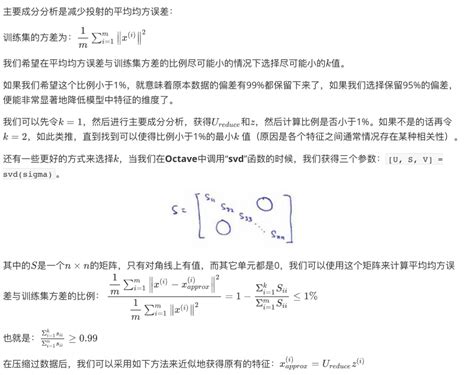 主要成分分析是减少投射的平均均方误差：
训练集的方差为：$\frac{1}{m}\sum_{i=1}^{m}\left\|x^{(i)}\right\|^2$
我们希望在平均均方误差与训练集方差的比例尽可能小的情况下选择尽可能小的$k$值。
如果我们希望这个比例小于1%，就意味着原本数据的偏差有99%都保留下来了，如果我们选择保留95%的偏差，
便能非常显著地降低模型中特征的维度了。
我们可以先令$k=1$，然后进行主要成分分析，获得$U_{reduce}$和$z$，然后计算比例是否小于1%。如果不是的话再令
$k=2$，如此类推，直到找到可以使得比例小于1%的最小$k$ 值（原因是各个特征之间通常情况存在某种相关性）。
还有一些更好的方式来选择$k$，当我们在Octave中调用“svd”函数的时候，我们获得三个参数：[U, S, V] =
svd(sigma) 。
$S=\begin{bmatrix}S_{11}&&&&\bigcirc\\&S_{22}&&&\\&&S_{33}&&\\&&&\ddots&\\\bigcirc&&&&S_{nn}\end{bmatrix}$
其中的$S$是一个$n\times n$的矩阵，只有对角线上有值，而其它单元都是0，我们可以使用这个矩阵来计算平均均方误
差与训练集方差的比例：$\frac{\frac{1}{m}\sum_{i=1}^{m}\left\|x^{(i)}-x_{approx}^{(i)}\right\|^2}{\frac{1}{m}\sum_{i=1}^{m}\left\|x^{(i)}\right\|^2}=1-\frac{\Sigma_{i=1}^{k}S_{ii}}{\Sigma_{i=1}^{m}S_{ii}}\leq 1\%$
也就是：$\frac{\Sigma_{i=1}^{k}s_{ii}}{\Sigma_{i=1}^{n}s_{ii}}\geq 0.99$
在压缩过数据后，我们可以采用如下方法来近似地获得原有的特征：$x_{approx}^{(i)}=U_{reduce}z^{(i)}$